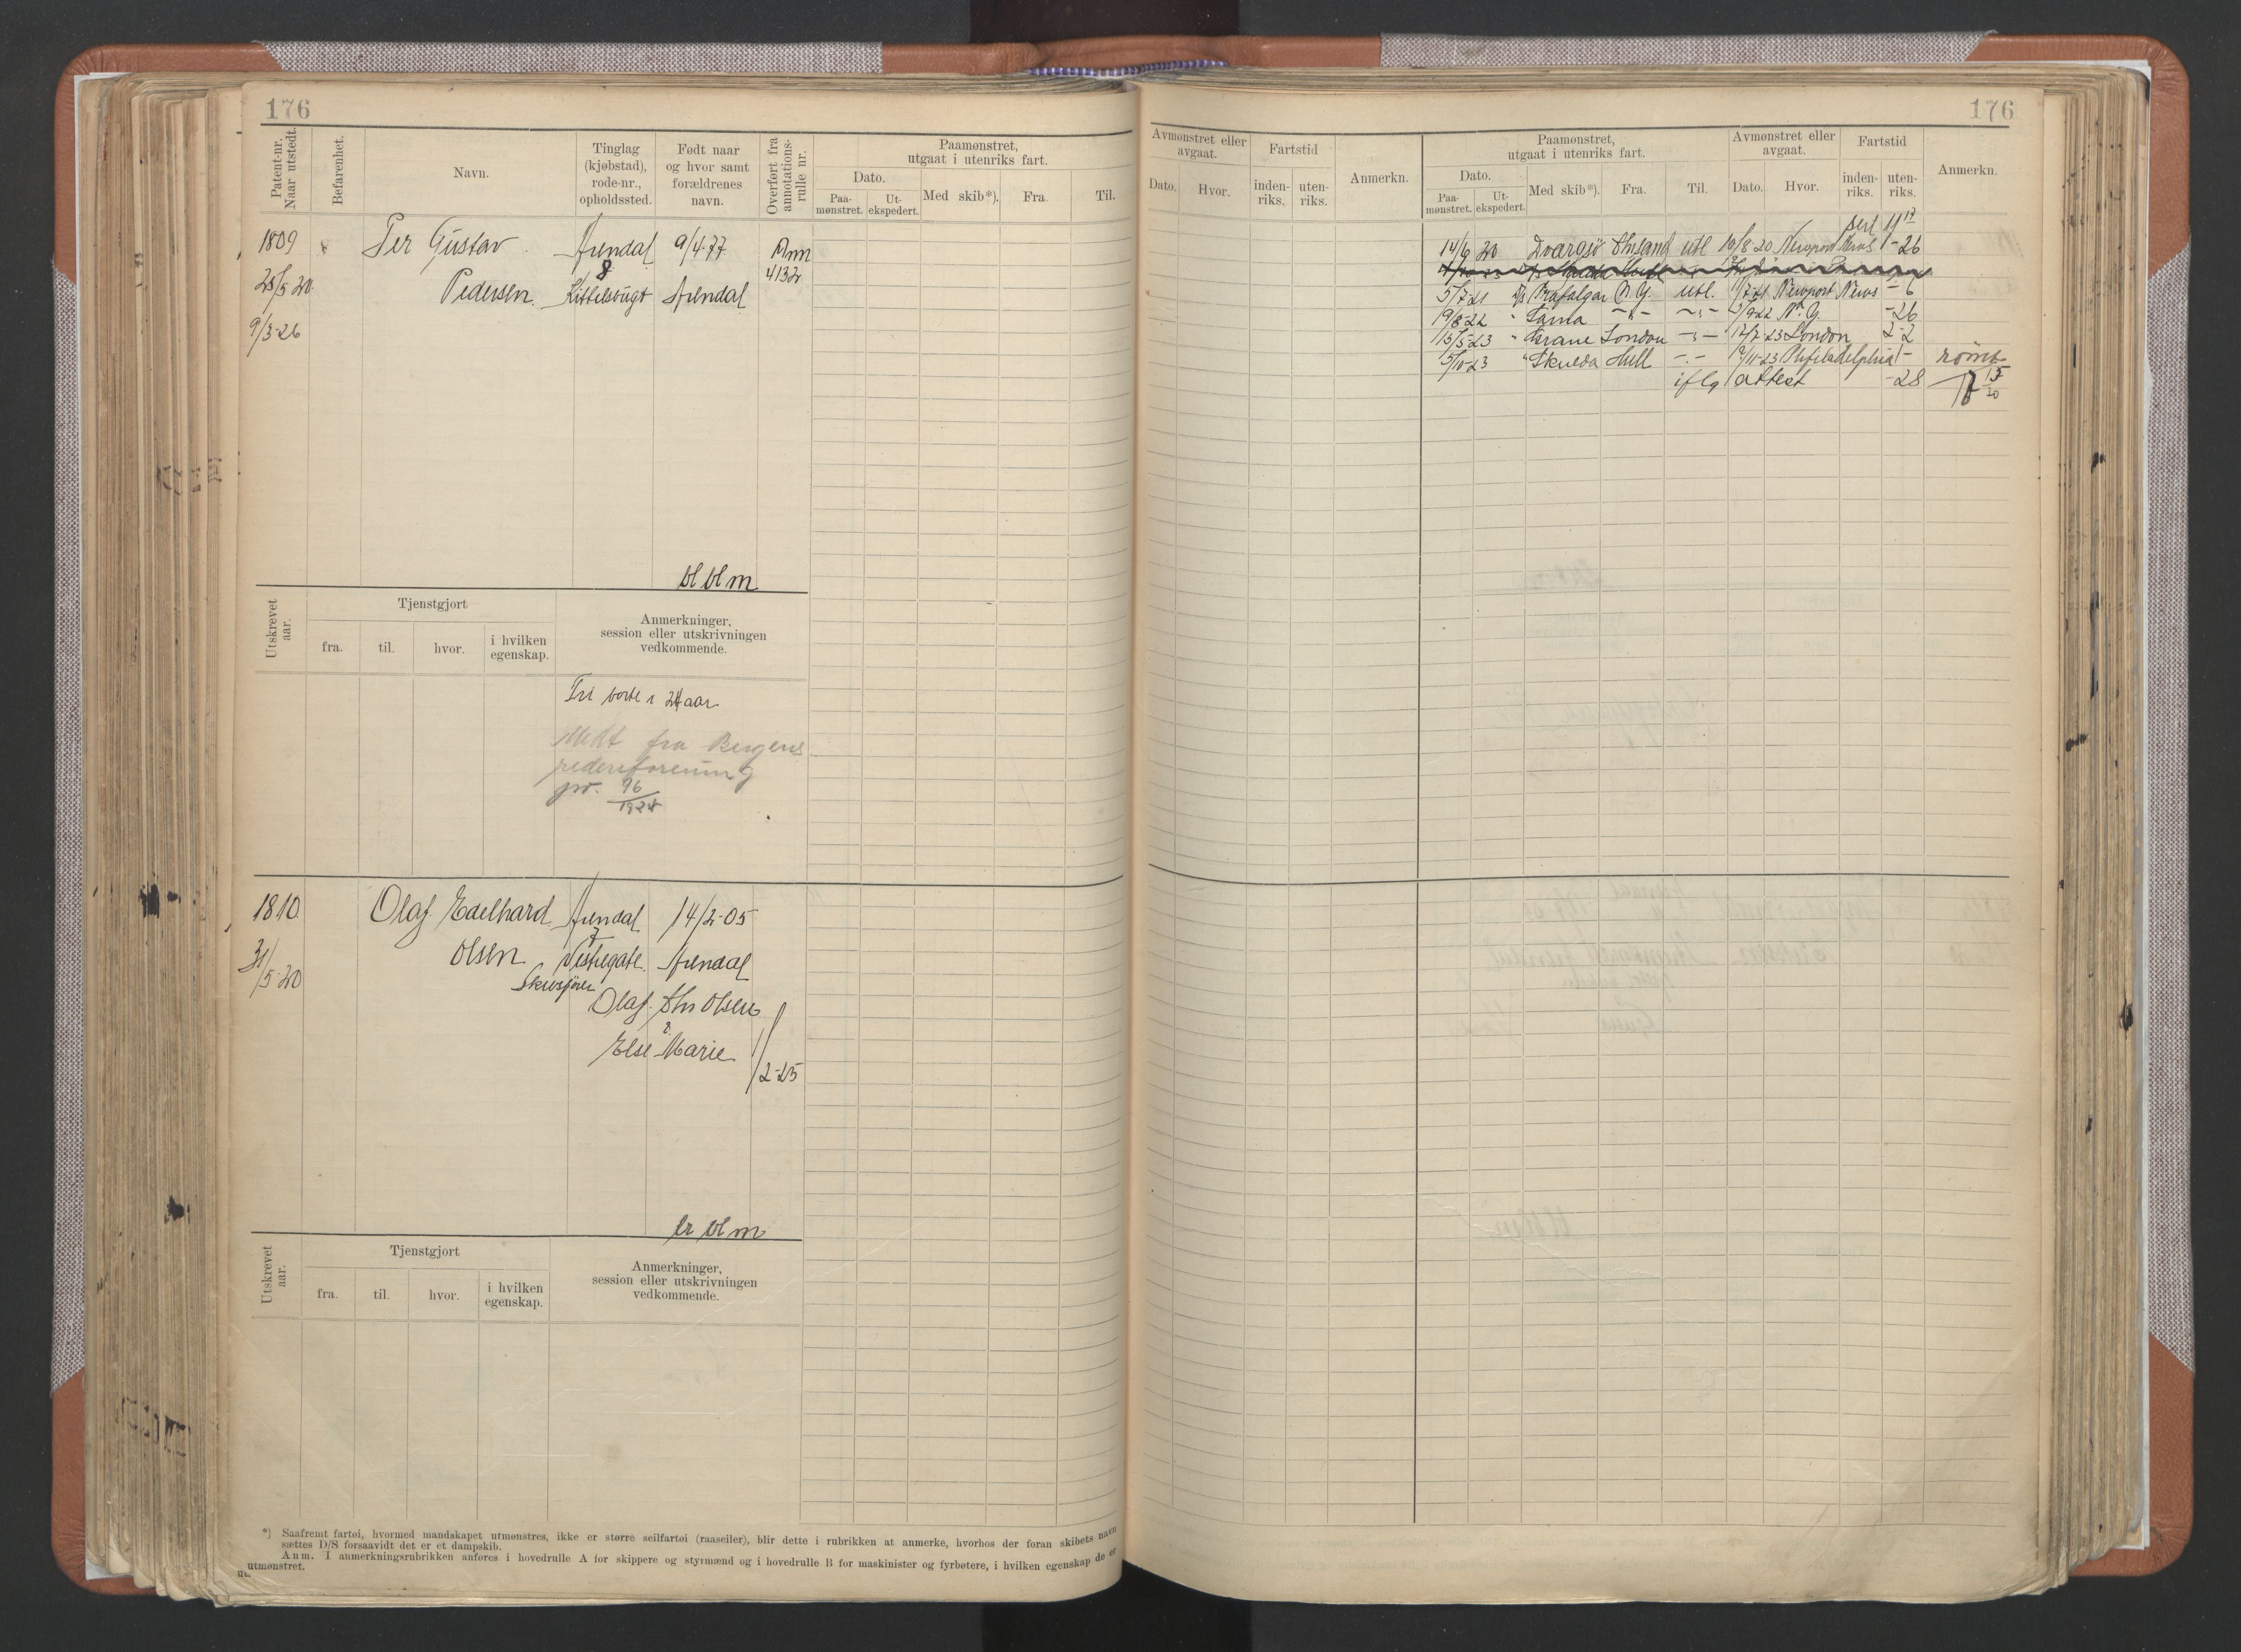 176
Patent-nr. Naar utstedt.
Befarenhet.
Navn.
Tinglag (kjøbstad), rode-nr., opholdssted.
Født naar og hvor samt forældrenes navn.
Overført fra annotations-rulle nr.
Paamønstret, utgaat i utenriks fart.
Dato.
Paa-mønstret.
Ut-ekspedert.
Med skib*).
Fra.
Til.
1809 Per Gustav Arendal 9/4-77
28/5 20 Pedersen 8 Kittelsbugt Arendal 4132
9/3-26
bl bl m
Utskrevet aar.
Tjenstgjort
fra.
til.
hvor.
i hvilken egenskap.
Anmerkninger, session eller utskrivningen vedkommende.
aar
fra Bergens
rederiforening
96
1810 Olaf Edelhard Arendal 14/2-05
31/5-20 Olsen 7 Vestregate Arendal
Olaf Chr Olsen
Else Marie
2-25
bl m
Utskrevet aar.
Tjenstgjort
fra.
til.
hvor.
i hvilken egenskap.
Anmerkninger, session eller utskrivningen vedkommende.
*) Saafremt fartøi, hvormed mandskapet utmønstres, ikke er større seilfartøi (raaseiler), blir dette i rubrikken at anmerke, hvorhos der foran skibets navn
sættes D/S forsaavidt det er et dampskib.
Anm. I anmerkningsrubrikken anføres i hovedrulle A for skippere og styrmænd og i hovedrulle B for maskinister og fyrbøtere, i hvilken egenskap de er
utmønstret.
176
Avmønstret eller avgaat.
Dato.
Hvor.
Fartstid
inden-riks.
uten-riks.
Anmerkn.
Paamønstret, utgaat i utenriks fart.
Dato.
Paa-mønstret.
Ut-ekspedert.
Med skib*).
Fra.
Til.
Avmønstret eller avgaat.
Dato.
Hvor.
Fartstid
inden-riks.
uten-riks.
Anmerkn.
14/6 20 utl 10/8-20 Newport News 1-26
5/7-21 D/S Trafalgar N.Y. utl. Newport News -6
19/8-22 " N.Y. -26
15/5-23 " London 17/7-23 London 2-2
5/10-23 " Skulda Hull Philadelphia 1- rømt
iflg attest -28